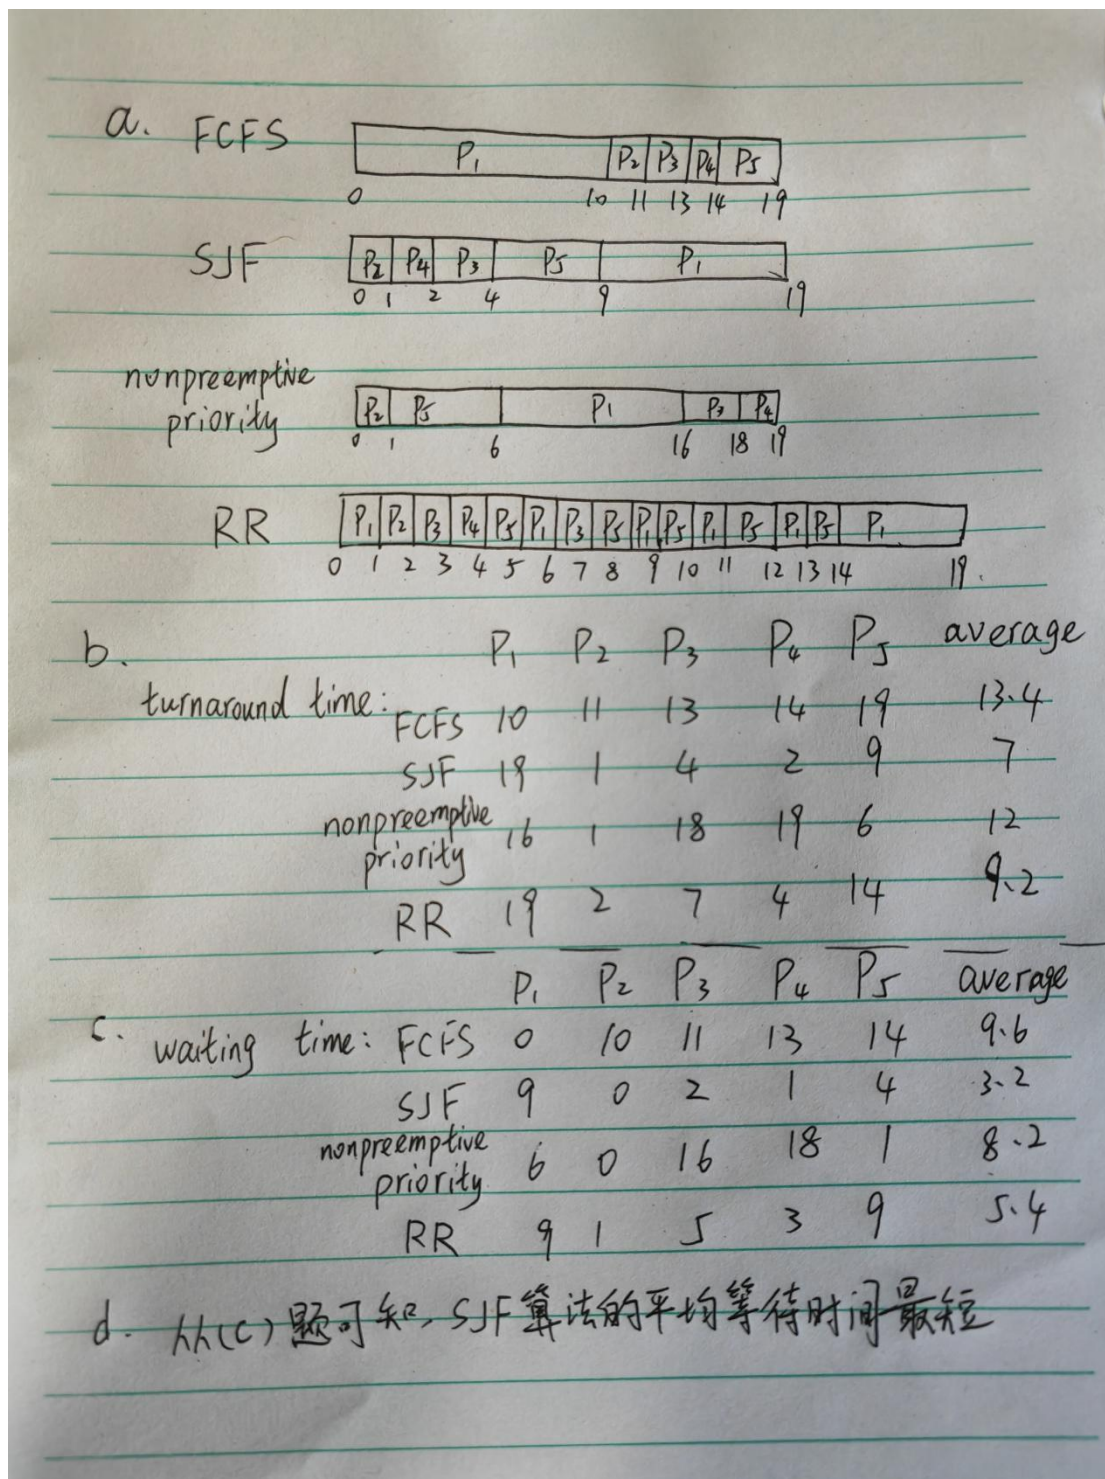 a. FCFS P₁ P₂ P₃ P₄ P₅
0 10 11 13 14 19
SJF P₂ P₄ P₃ P₅ P₁
0 1 2 4 9 19
nonpreemptive
priority P₂ P₅ P₁ P₃ P₄
0 1 6 16 18 19
RR P₁ P₂ P₃ P₄ P₅ P₁ P₃ P₅ P₁ P₅ P₁ P₅ P₁ P₅ P₁
0 1 2 3 4 5 6 7 8 9 10 11 12 13 14 19.
b. P₁ P₂ P₃ P₄ P₅ average
turnaround time: FCFS 10 11 13 14 19 13.4
SJF 19 1 4 2 9 7
nonpreemptive
priority 16 1 18 19 6 12
RR 19 2 7 4 14 9.2
P₁ P₂ P₃ P₄ P₅ average
c. waiting time: FCFS 0 10 11 13 14 9.6
SJF 9 0 2 1 4 3.2
nonpreemptive
priority 6 0 16 18 1 8.2
RR 9 1 5 3 9 5.4
d. 从(c)题可知, SJF算法的平均等待时间最短